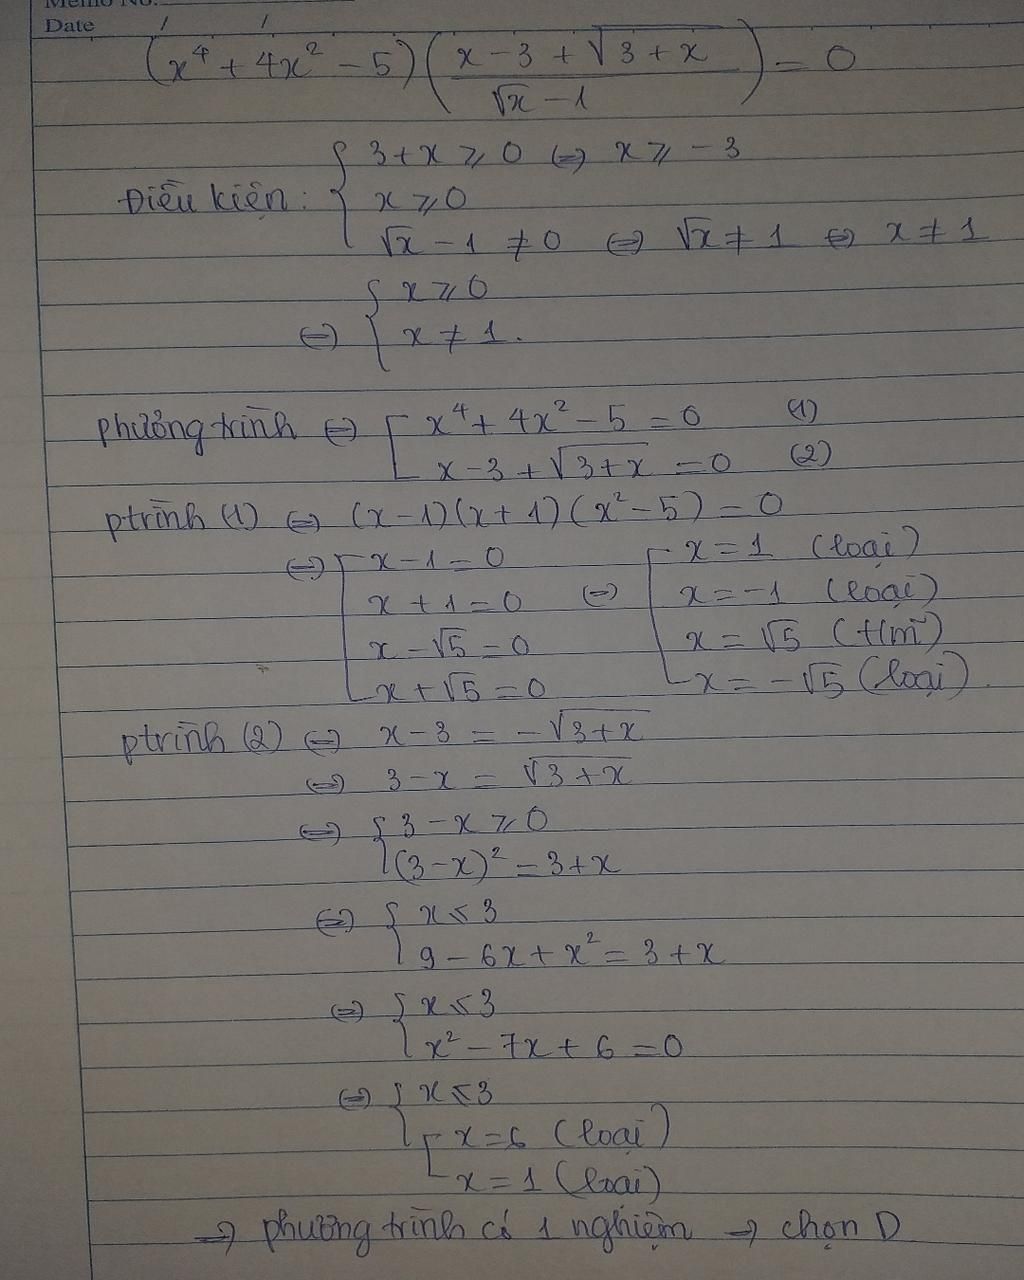 Memo No.
Date / /
(x⁴ + 4x² - 5) ((x - 3 + √(3 + x)) / (√x - 1)) = 0
Điều kiện: { 3 + x ≥ 0 ⇔ x ≥ -3
x ≥ 0
√x - 1 ≠ 0 ⇔ √x ≠ 1 ⇔ x ≠ 1
⇔ { x ≥ 0
x ≠ 1.
phương trình ⇔ [ x⁴ + 4x² - 5 = 0 (1)
x - 3 + √(3 + x) = 0 (2)
ptrình (1) ⇔ (x - 1)(x + 1)(x² - 5) = 0
⇔ [ x - 1 = 0 ⇔ [ x = 1 (loại)
x + 1 = 0 x = -1 (loại)
x - √5 = 0 x = √5 (t/m)
x + √5 = 0 x = -√5 (loại).
ptrình (2) ⇔ x - 3 = -√(3 + x)
⇔ 3 - x = √(3 + x)
⇔ { 3 - x ≥ 0
(3 - x)² = 3 + x
⇔ { x ≤ 3
9 - 6x + x² = 3 + x
⇔ { x ≤ 3
x² - 7x + 6 = 0
⇔ { x ≤ 3
[ x = 6 (loại)
x = 1 (loại)
→ phương trình có 1 nghiệm → chọn D